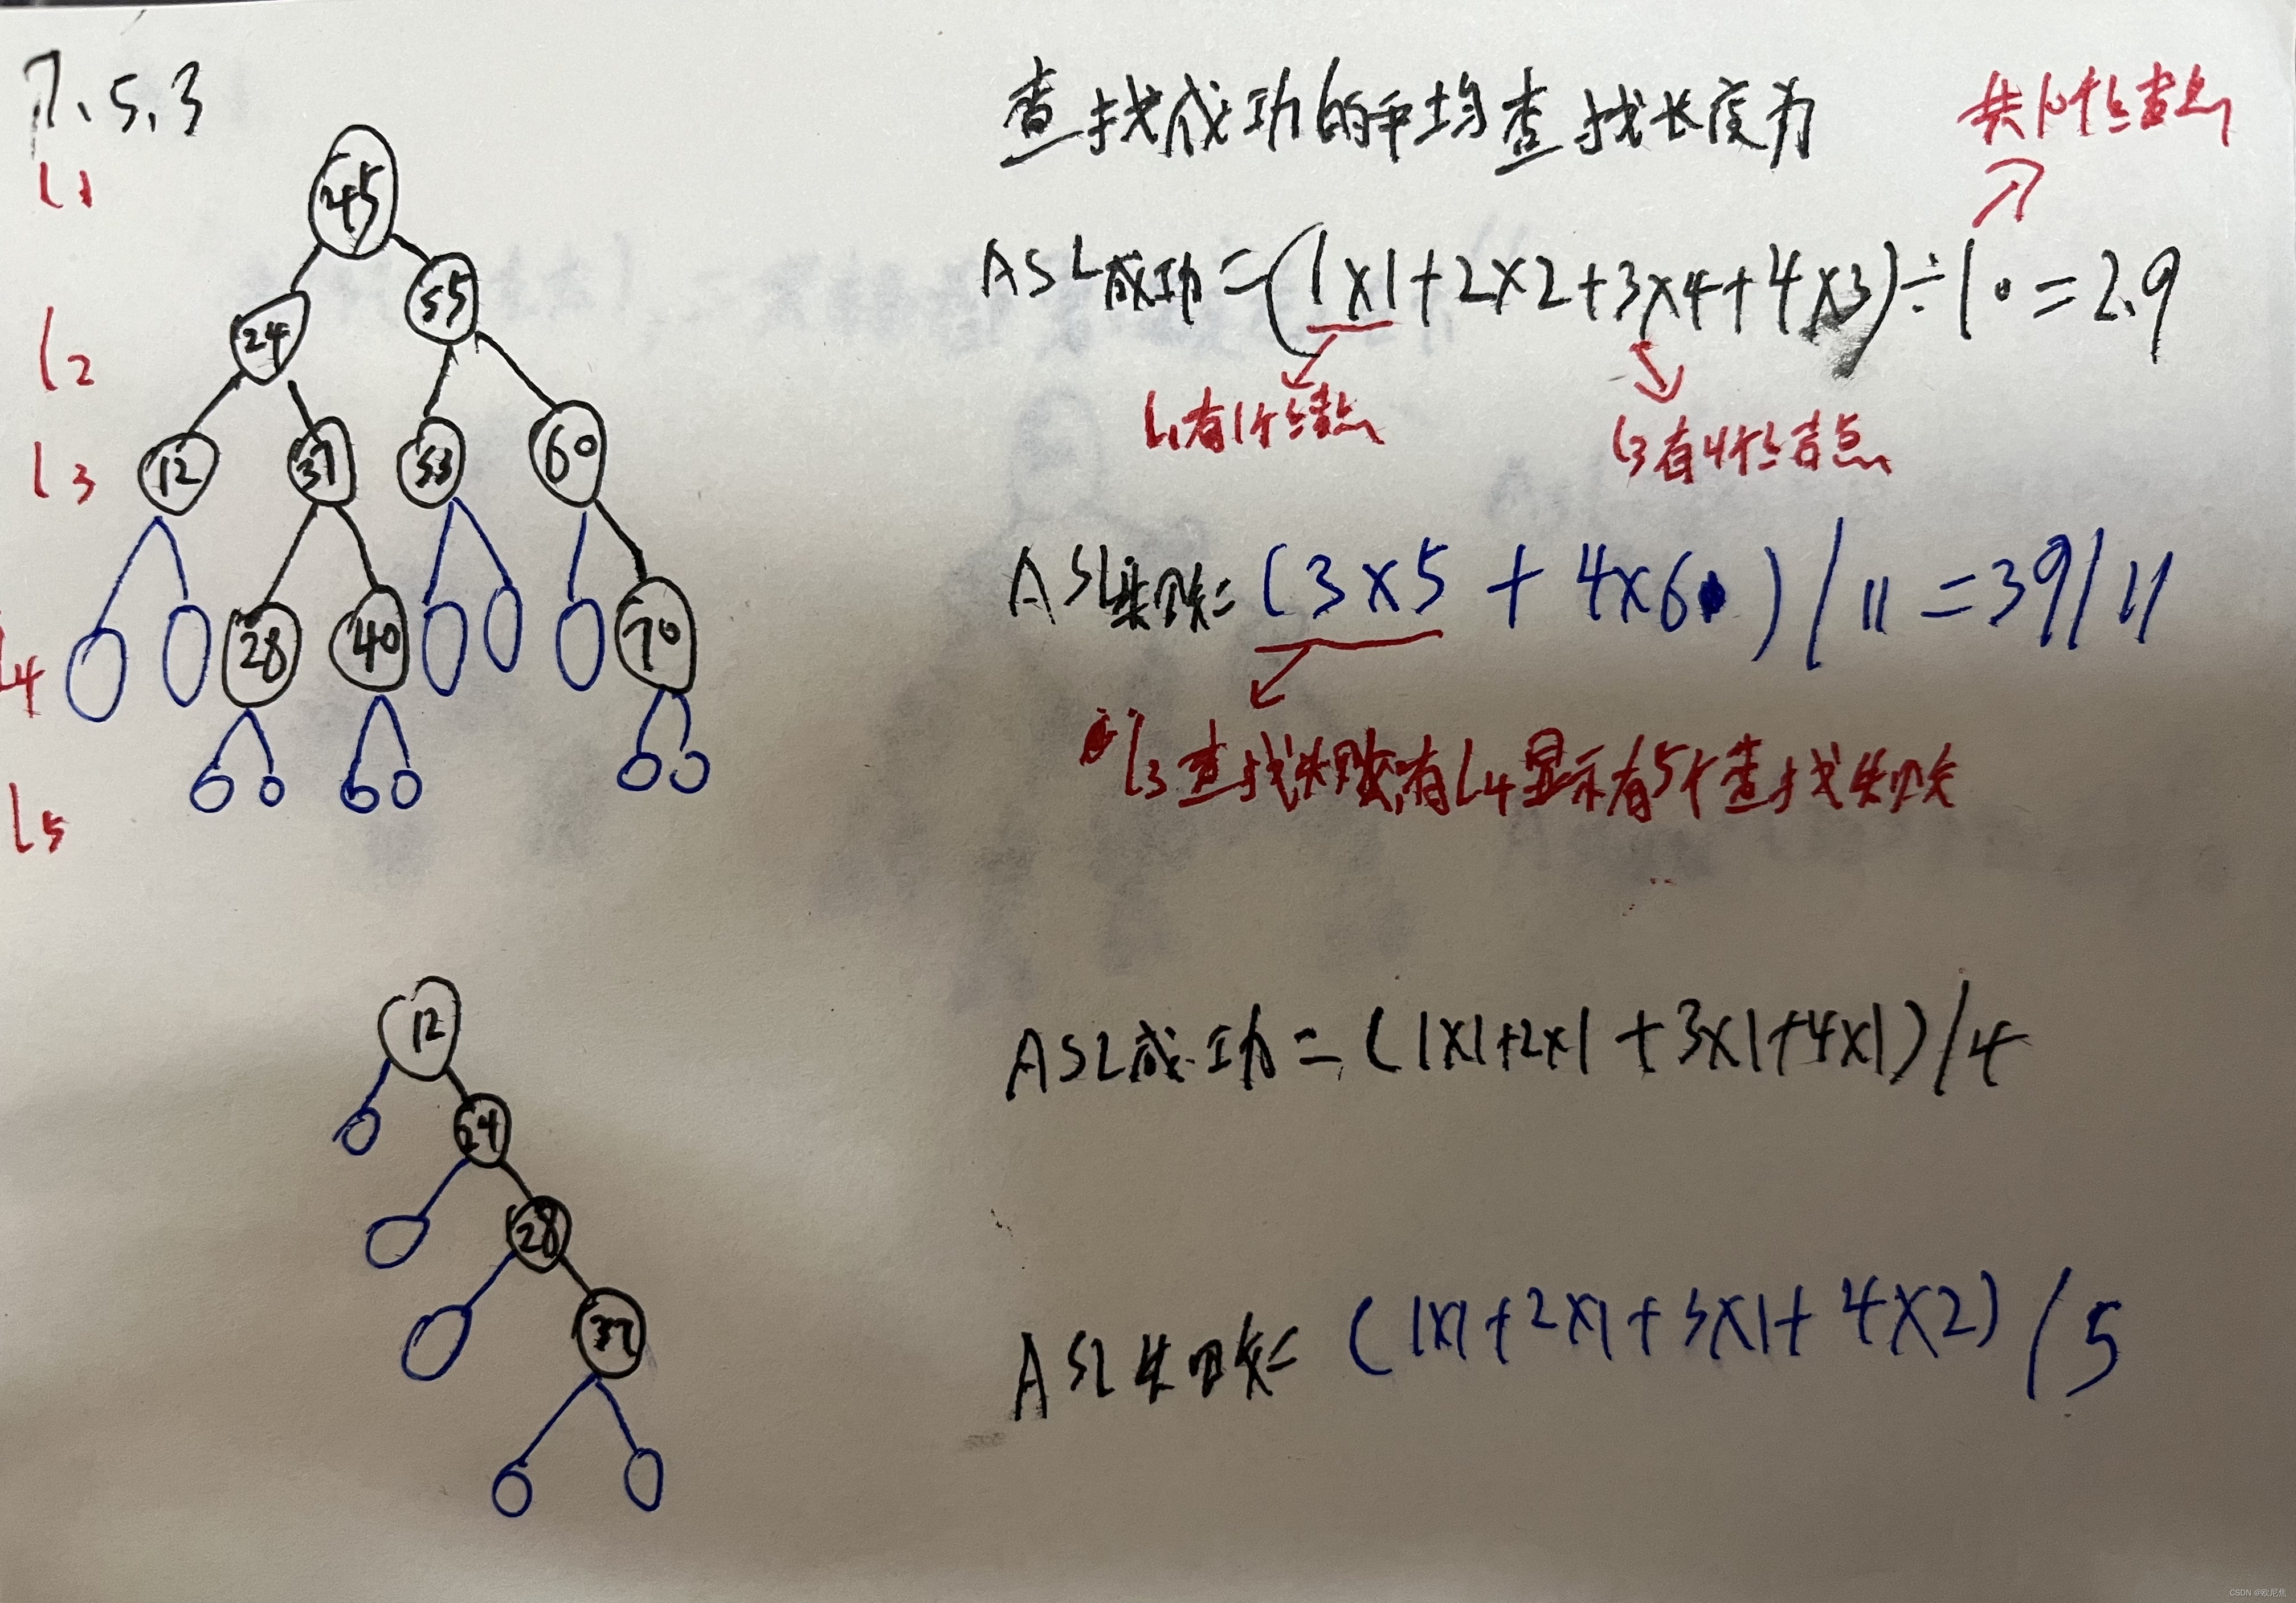 7、5、3
查找成功的平均查找长度为
共10个结点
l1
45
ASL成功=(1×1+2×2+3×4+4×3)÷10=2.9
l2
24 55
l1有1个结点
l3有4个结点
l3
12 37 53 60
ASL失败=(3×5+4×6)/11=39/11
l4
28 40 70
l3查找失败,有l4显示有5个查找失败
l5
12
ASL成功=(1×1+2×1+3×1+4×1)/4
24
28
37
ASL失败=(1×1+2×1+3×1+4×2)/5
CSDN @欧尼焦